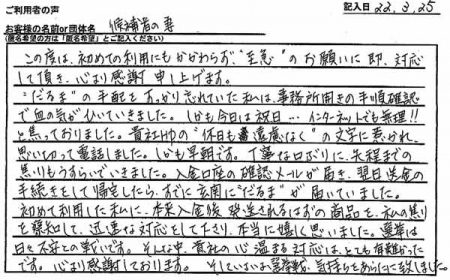 ご利用者の声
記入日 22.3.25
お客様の名前or団体名 候補者の妻
(匿名希望の方は「匿名希望」とご記入ください)
この度は、初めての利用にもかかわらず、"至急"のお願いに即、対応
して頂き、心より感謝申し上げます。
"だるま"の手配をすっかり忘れていた私は、事務所開きの手順確認
で血の気がひいていきました。しかも今日は祝日…インターネットでも無理!!
と焦っておりました。貴社HPの"休日も遠慮なく"の文字に惹かれ
思い切って電話しました。しかも早朝です。丁寧な口ぶりに、先程までの
焦りもうすらいでいきました。入金口座の確認メールが届き、翌日送金の
手続きをして帰宅したら、すでに玄関に"だるま"が届いていました。
初めて利用した私に、本来入金後発送されるはずの商品を、私の焦り
を察知して、迅速な対応をして下さり、本当に嬉しく思いました。選挙は
日々不安との戦いです。そんな中、貴社の心温まる対応は、とても有難かった
です。心より感謝しております。